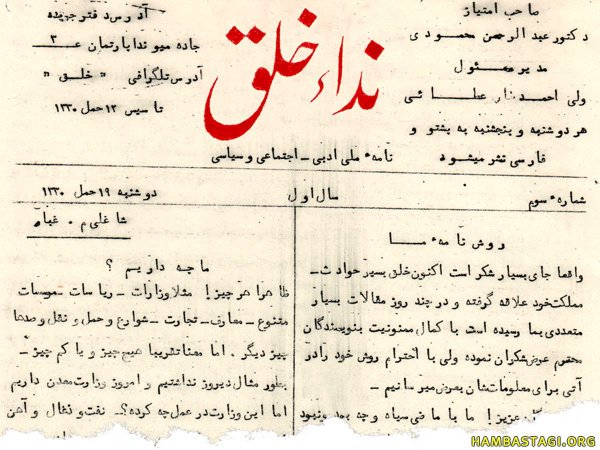 صاحب امتیاز
دکتور عبدالرحمن محمودی
مدیر مسئول
ولی احمد عطائی
هر دوشنبه و پنجشنبه به پشتو و
فارسی نشر میشود
نداء خلق
نامهٔ ملی ادبی - اجتماعی و سیاسی
آدرس دفتر جریده
جاده میوند اپارتمان ۳
آدرس تلگرافی « خلق »
تاسیس ۱۲ حمل ۱۳۳۰
شمارهٔ سوم
سال اول
دوشنبه ۱۹ حمل ۱۳۳۰
روش نامهٔ ما
واقعا جای بسیار شکر است اکنون خلق بسیر حوادث
مملکت خود علاقه گرفته و در چند روز مقالات بسیار
متعددی بما رسیده است با کمال ممنونیت بنویسندگان
محترم عرض شکران نموده ولی با احترام روش خود را در
آتی برای معلومات شان بعرض میرسانیم -
عزیز! ما با مافی سیاه و چه بد و نبود
شاغلی م . غبار
ما چه داریم ؟
ظاهرا هر چیز! مثلا وزارات - ریاسات - موسسات
متنوع - معارف - تجارت - شوارع و حمل و نقل و صدها
چیز دیگر . اما معنا تقریبا هیچ چیز و یا کم چیز -
بطور مثال دیروز نداشتیم و امروز وزارت معدن داریم
اما این وزارت در عمل چه کرده؟ نفت و ذغال و آهن
HAMBASTAGI.ORG